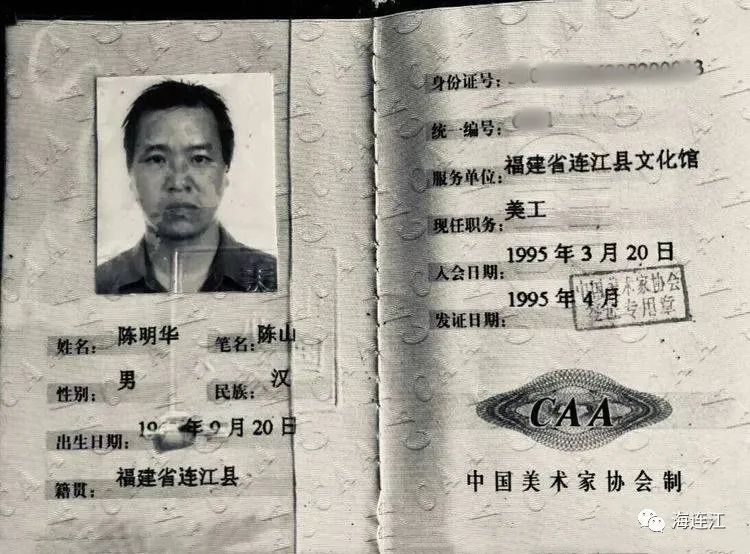 姓名: 陈明华 笔名: 陈山
性别: 男 民族: 汉
出生日期: 19 年9月20日
籍贯: 福建省连江县
身份证号:
统一编号:
服务单位: 福建省连江县文化馆
现任职务: 美工
入会日期: 1995年3月20日
发证日期: 1995年4月
中国美术家协会
专用章
CAA
中国美术家协会制
海连江